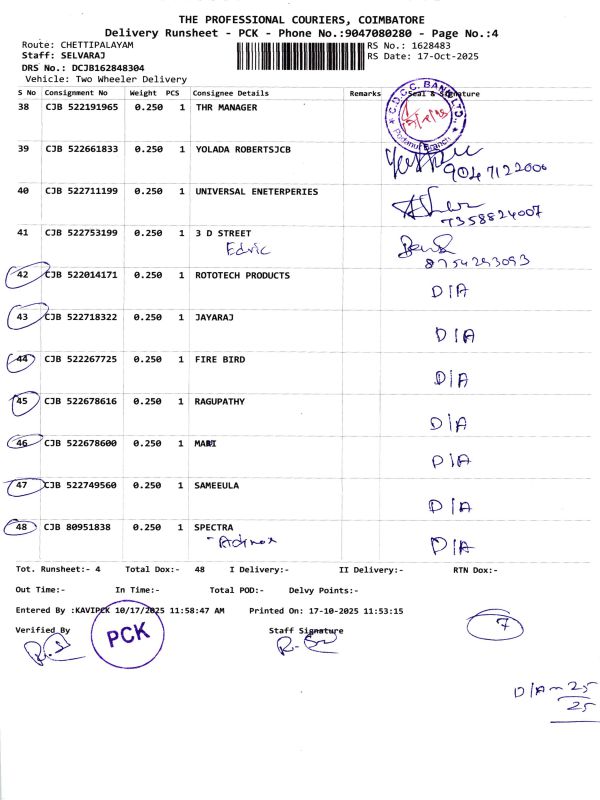 THE PROFESSIONAL COURIERS, COIMBATORE
Delivery Runsheet - PCK - Phone No.:9047080280 - Page No.:4
Route: CHETTIPALAYAM RS No.: 1628483
Staff: SELVARAJ RS Date: 17-Oct-2025
DRS No.: DCJB162848304
Vehicle: Two Wheeler Delivery
S No Consignment No Weight PCS Consignee Details Remarks Seal & Signature
38 CJB 522191965 0.250 1 THR MANAGER
C.D.C.C. BANK LTD.,
Branch
39 CJB 522661833 0.250 1 YOLADA ROBERTSJCB
9047122006
40 CJB 522711199 0.250 1 UNIVERSAL ENETERPERIES
7358824007
41 CJB 522753199 0.250 1 3 D STREET
Edric
8754293093
42 CJB 522014171 0.250 1 ROTOTECH PRODUCTS
D/A
43 CJB 522718322 0.250 1 JAYARAJ
D/A
44 CJB 522267725 0.250 1 FIRE BIRD
D/A
45 CJB 522678616 0.250 1 RAGUPATHY
D/A
46 CJB 522678600 0.250 1
D/A
47 CJB 522749560 0.250 1 SAMEEULA
D/A
48 CJB 80951838 0.250 1 SPECTRA
D/A
Tot. Runsheet:- 4 Total Dox:- 48 I Delivery:- II Delivery:- RTN Dox:-
Out Time:- In Time:- Total POD:- Delvy Points:-
Entered By :KAVIPCK 10/17/2025 11:58:47 AM Printed On: 17-10-2025 11:53:15
7
Verified By Staff Signature
PCK
D/A - 25
25